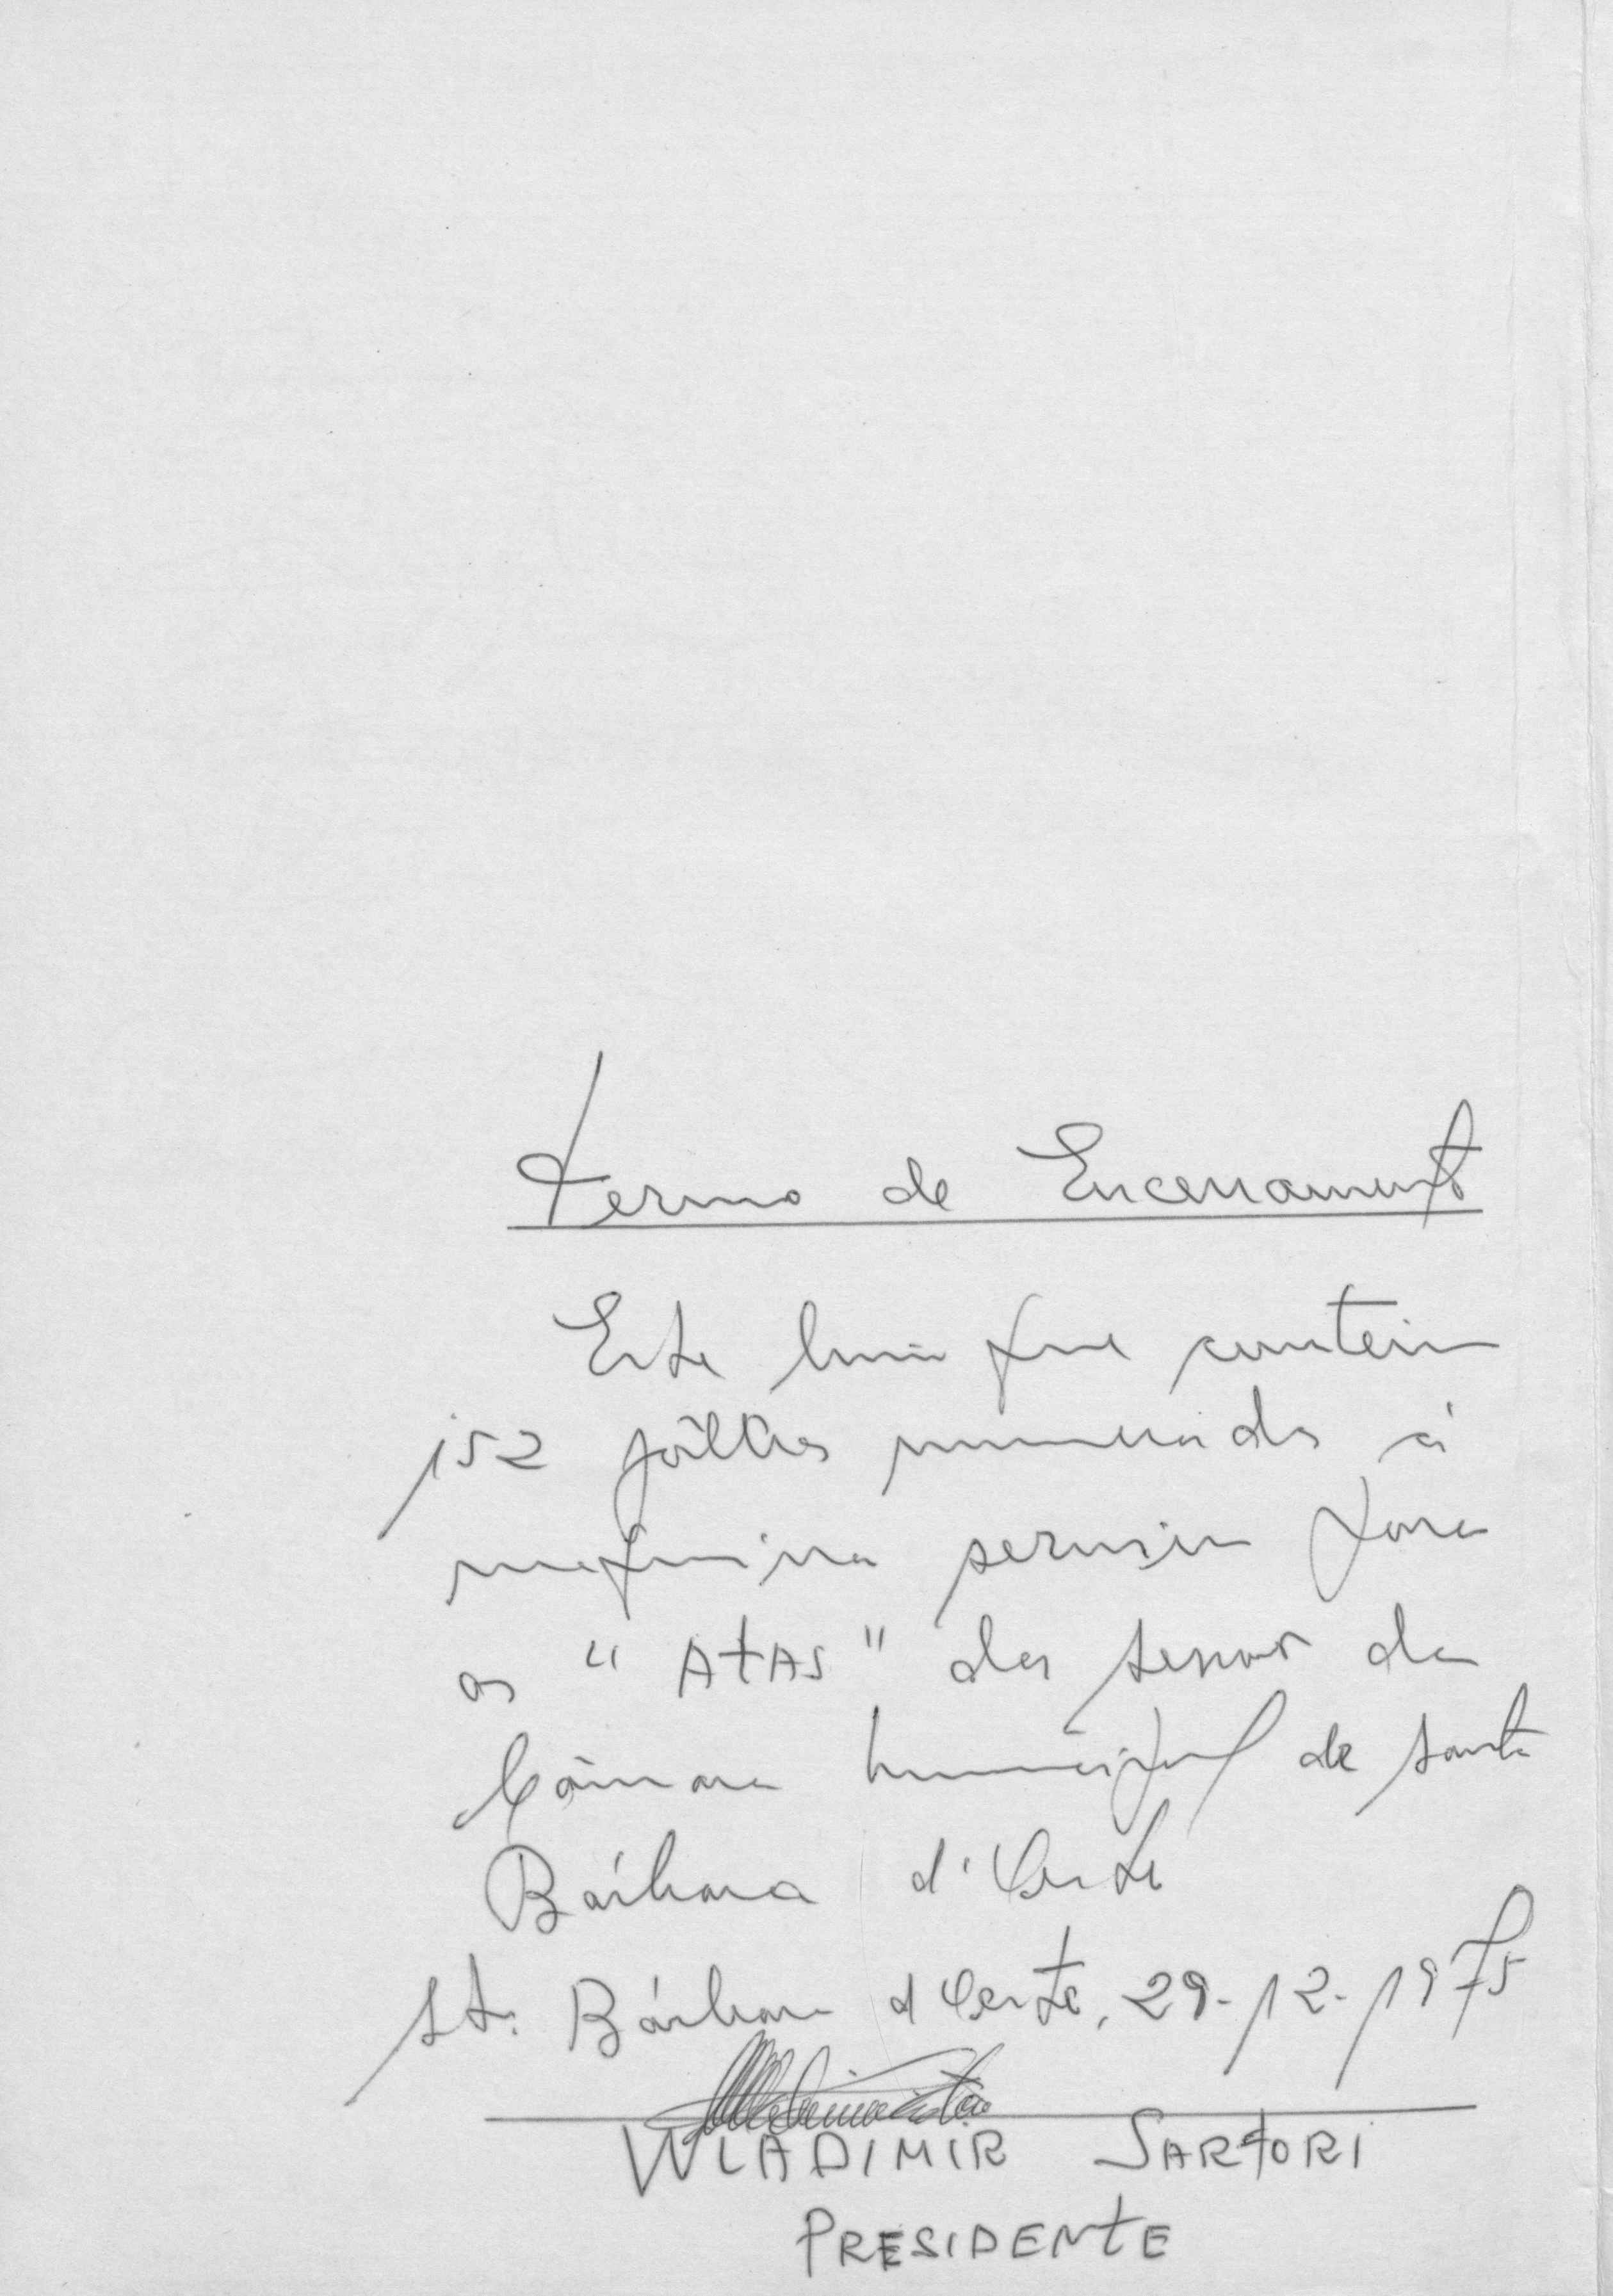 Termo de Encerramento
Este livro que contem
152 fôlhas numeradas à
maquina serviu para
as "ATAS" das sessões da
Câmara Municipal de Santa
Bárbara d'Oeste
Sta. Bárbara d'Oeste, 29-12-1975
WLADIMIR SARTORI
PRESIDENTE